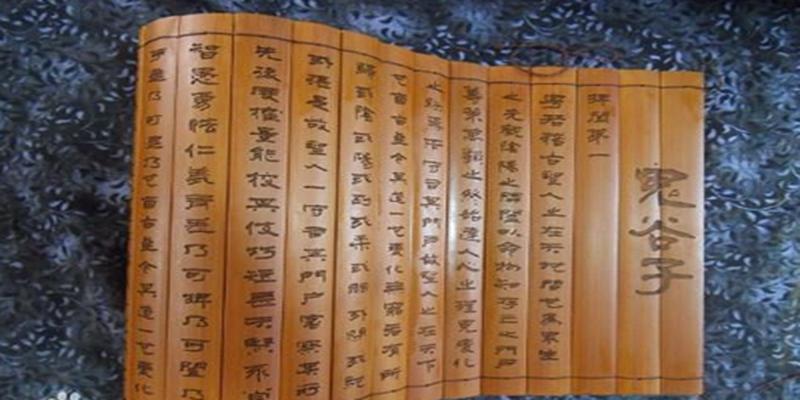 鬼谷子
捭闔第一
粵若稽古聖人之在天地間也為眾生
之先觀陰陽之開闔以命物知存亡之門戶
籌策萬類之終始達人心之理見變化
之朕焉而守司其門戶故聖人之在天下
也自古至今其道一也變化無窮各有所
歸或陰或陽或柔或剛或開或閉或弛
或張是故聖人一守司其門戶審察其所
先後度權量能校其伎巧短長夫賢不肖
智愚勇怯仁義有差乃可捭乃可闔乃
可進乃可退乃也自古至今其道一也變化